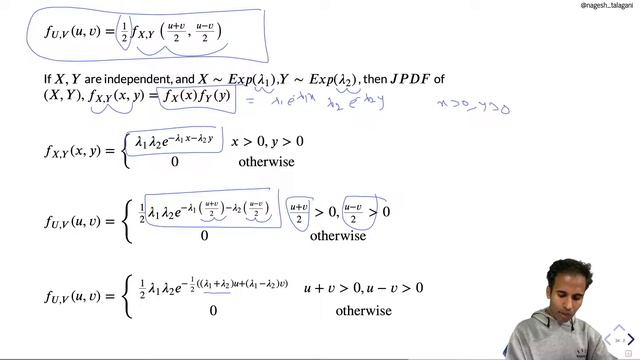 @nagesh_talagani
f_{U,V}(u, v) = \frac{1}{2} f_{X,Y} \left( \frac{u+v}{2}, \frac{u-v}{2} \right)
If X, Y are independent, and X ∼ Exp(λ₁), Y ∼ Exp(λ₂), then JPDF of
(X, Y), f_{X,Y}(x, y) = f_X(x)f_Y(y) = λ₁e^{-λ₁x} λ₂ e^{-λ₂y} x>0, y>0
f_{X,Y}(x, y) = { λ₁λ₂e^{-λ₁x-λ₂y} x > 0, y > 0
0 otherwise
f_{U,V}(u, v) = { \frac{1}{2} λ₁λ₂e^{-λ₁(\frac{u+v}{2})-λ₂(\frac{u-v}{2})} \frac{u+v}{2} > 0, \frac{u-v}{2} > 0
0 otherwise
f_{U,V}(u, v) = { \frac{1}{2} λ₁λ₂e^{-\frac{1}{2}((λ₁+λ₂)u+(λ₁-λ₂)v)} u + v > 0, u − v > 0
0 otherwise